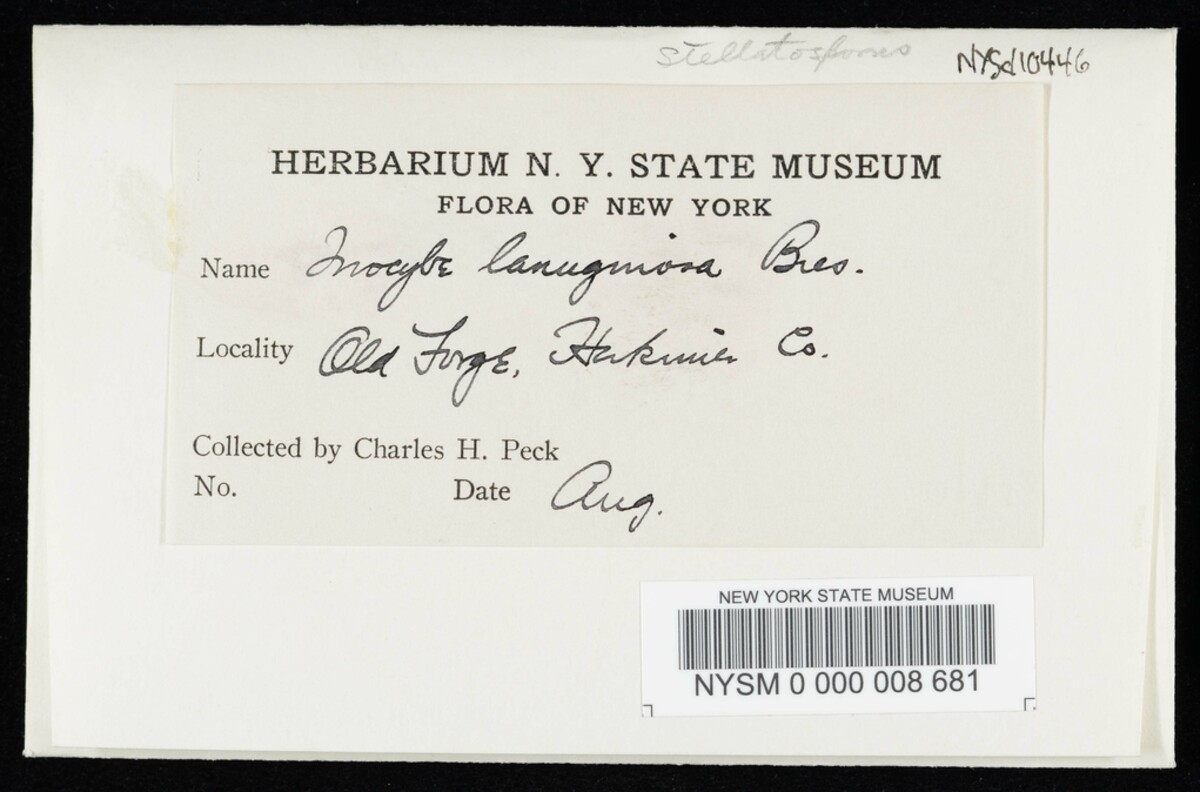 stellatosporus
NYSd10446
HERBARIUM N. Y. STATE MUSEUM
FLORA OF NEW YORK
Name Inocybe lanuginosa Bres.
Locality Old Forge, Herkimer Co.
Collected by Charles H. Peck
No. Date Aug.
NEW YORK STATE MUSEUM
NYSM 0 000 008 681